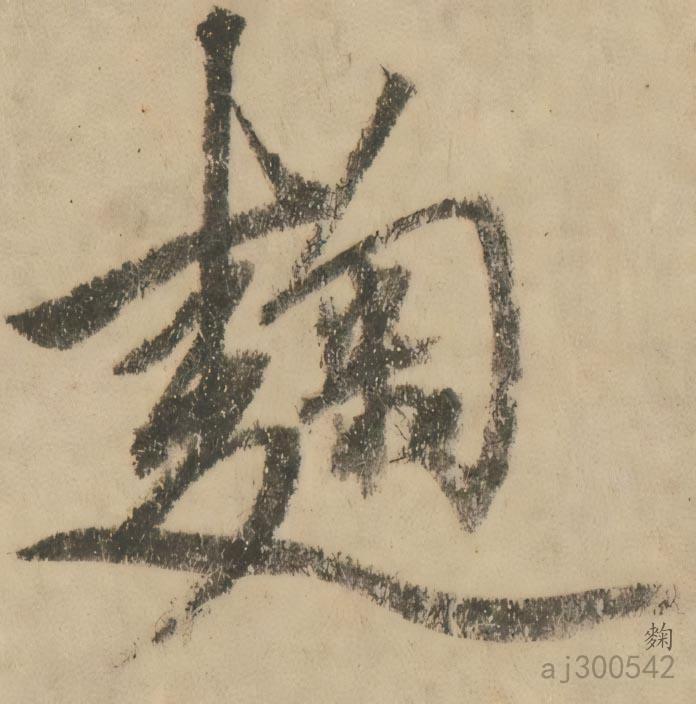 麴
麴
aj300542